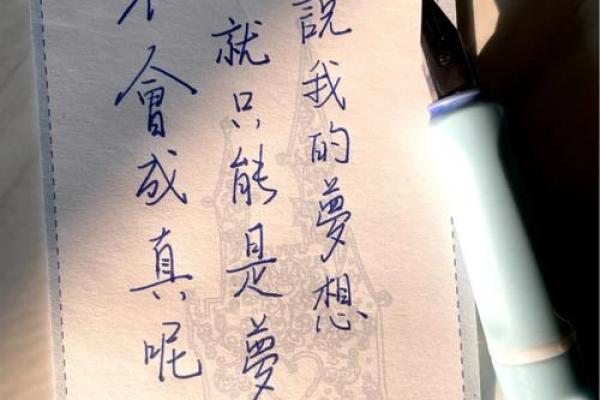 說我的夢想
就只能是夢
會成真呢